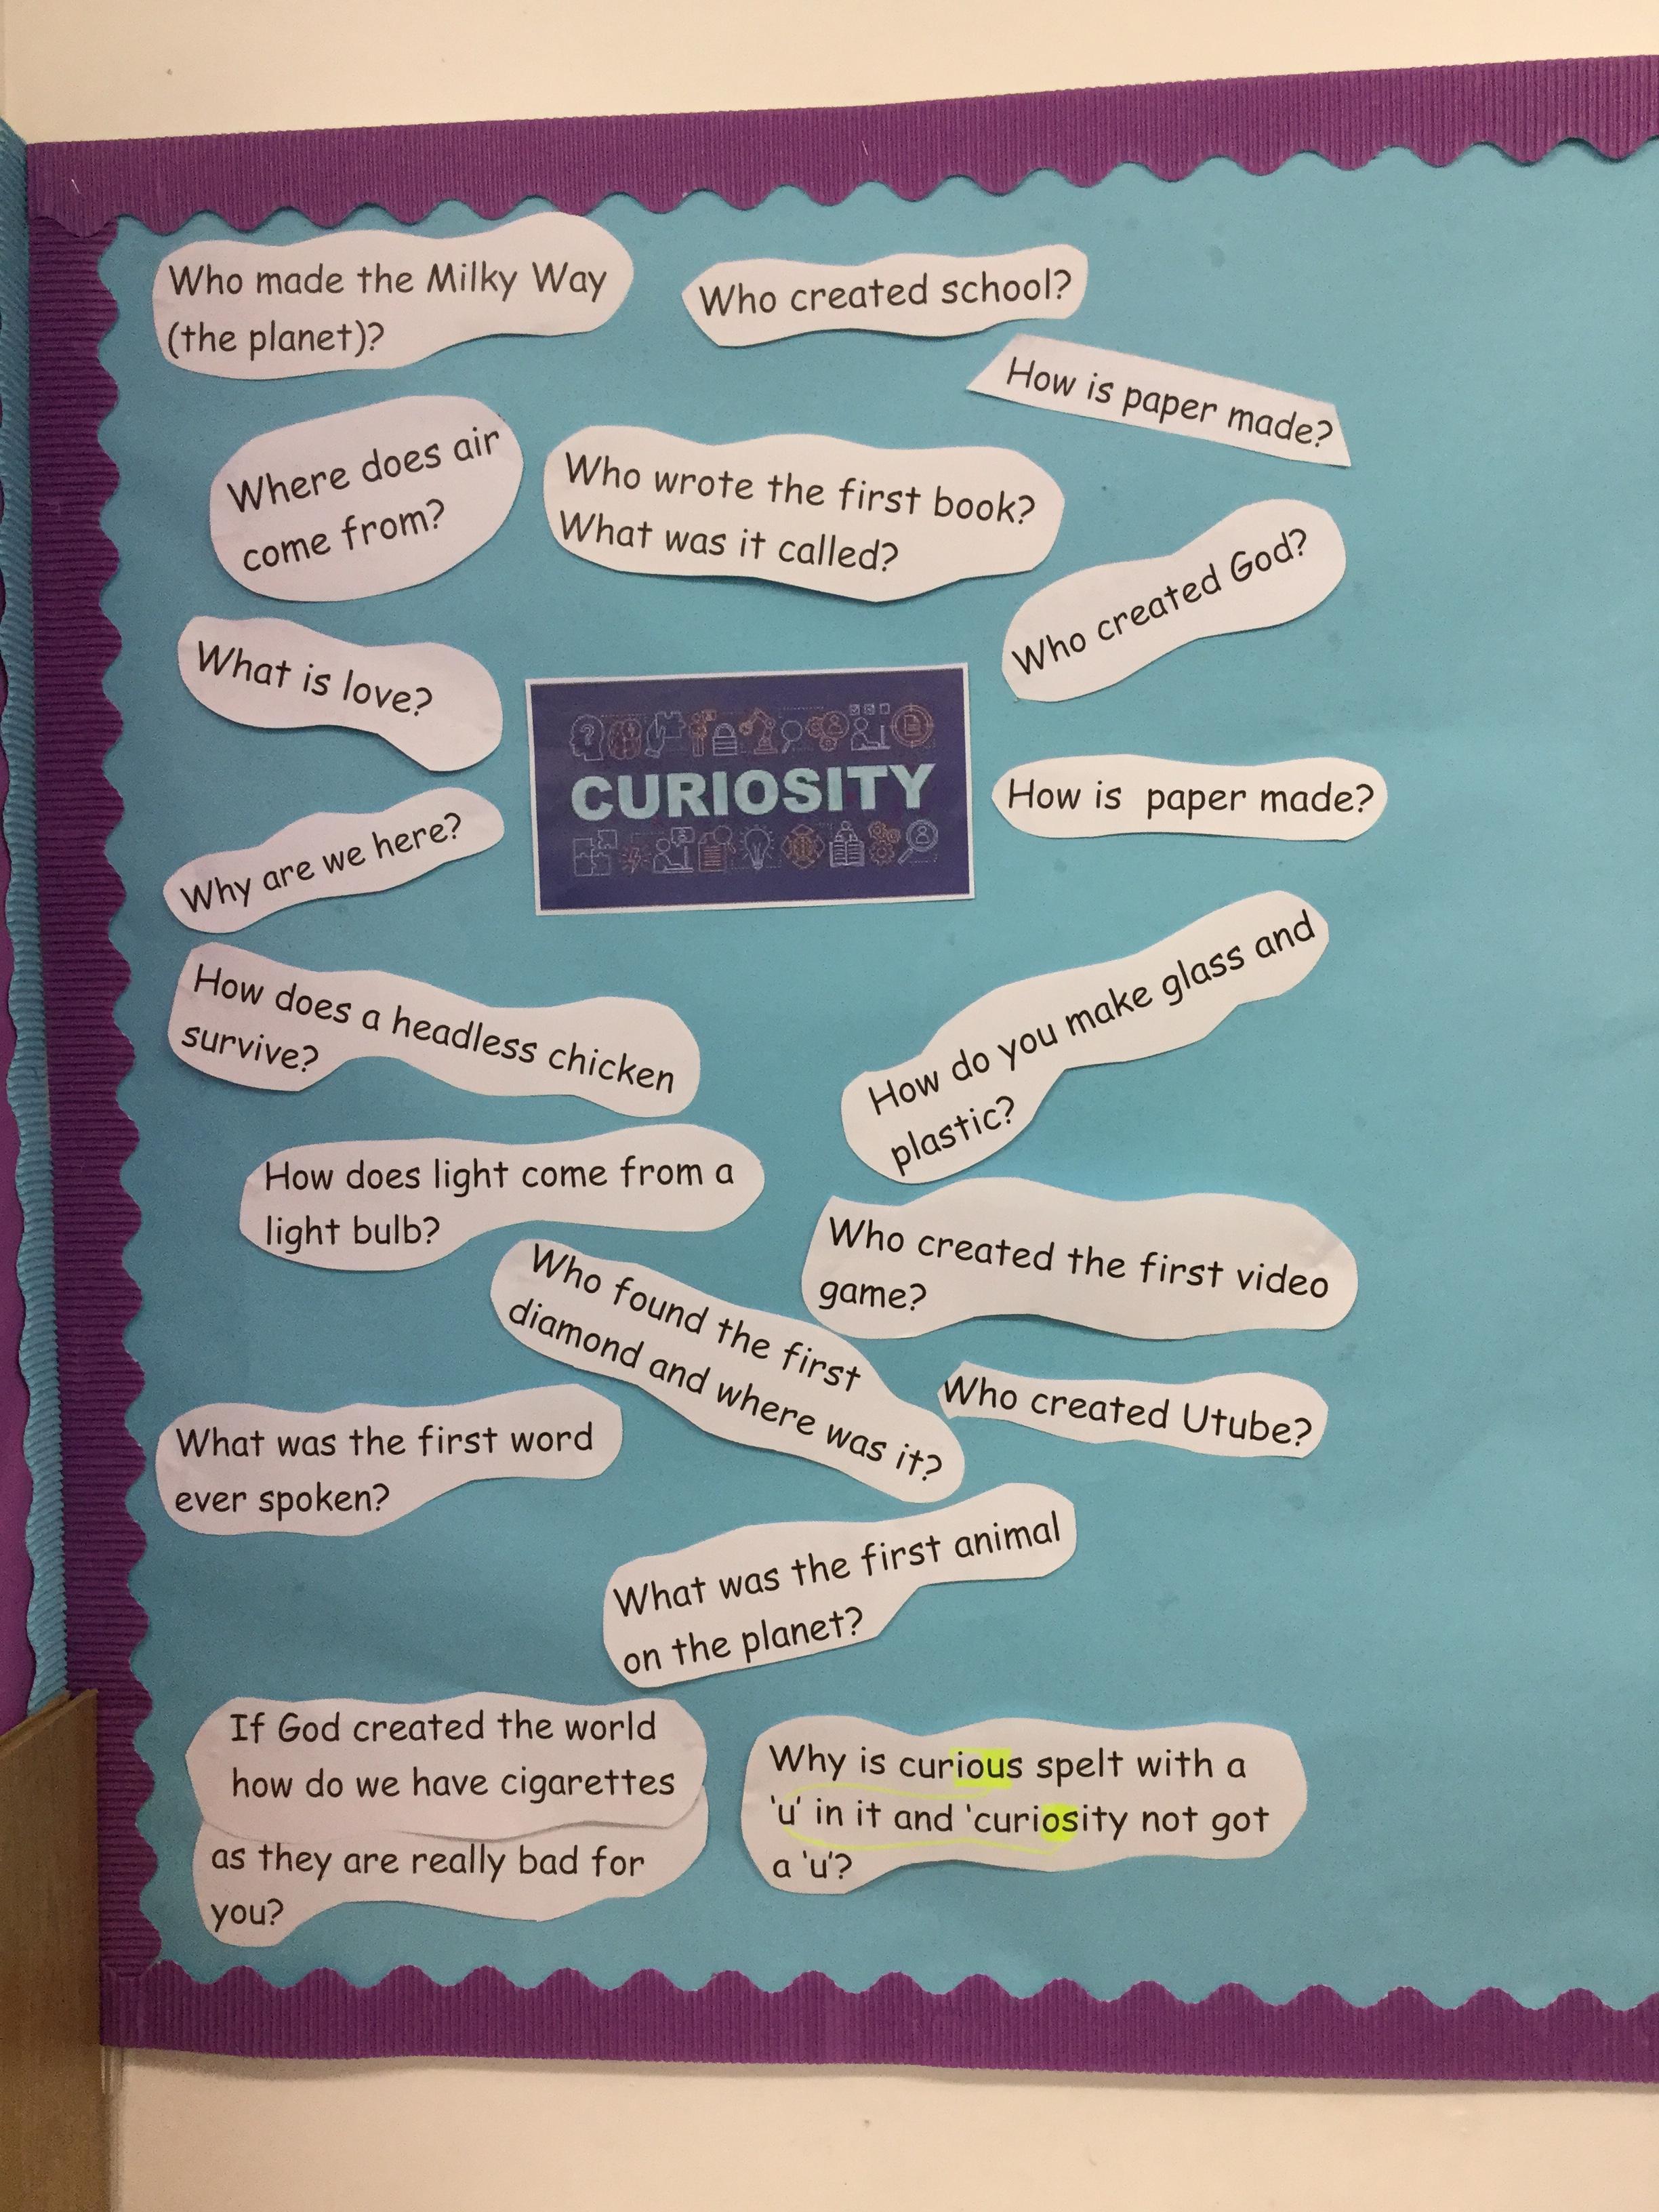 Who made the Milky Way
(the planet)?
Who created school?
How is paper made?
Where does air
come from?
Who wrote the first book?
What was it called?
Who created God?
What is love?
CURIOSITY
How is paper made?
Why are we here?
How does a headless chicken
survive?
How do you make glass and
plastic?
How does light come from a
light bulb?
Who created the first video
game?
Who found the first
diamond and where was it?
Who created Utube?
What was the first word
ever spoken?
What was the first animal
on the planet?
If God created the world
how do we have cigarettes
as they are really bad for
you?
Why is curious spelt with a
'u' in it and 'curiosity not got
a 'u'?